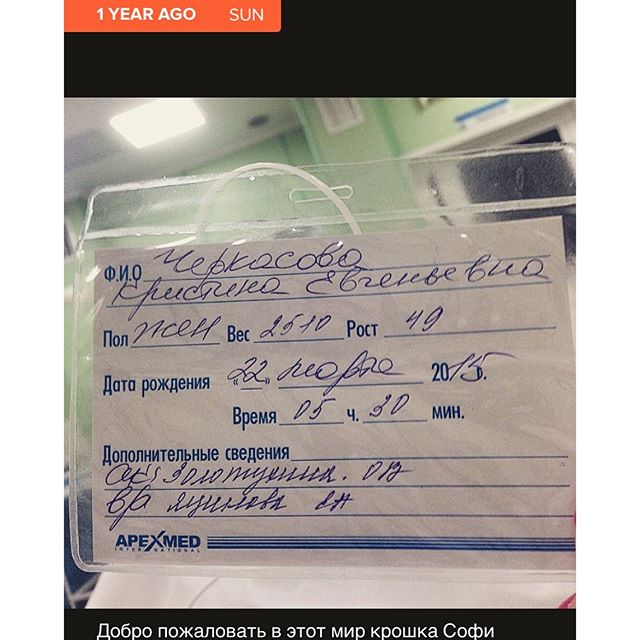 1 YEAR AGO SUN
Ф.И.О Черкасова
Кристина Евгеньевна
Пол жен Вес 2510 Рост 49
Дата рождения «22» марта 2015г.
Время 05 ч. 30 мин.
Дополнительные сведения
Золотухина. ОВ
APEXMED
INTERNATIONAL
Добро пожаловать в этот мир крошка Софи